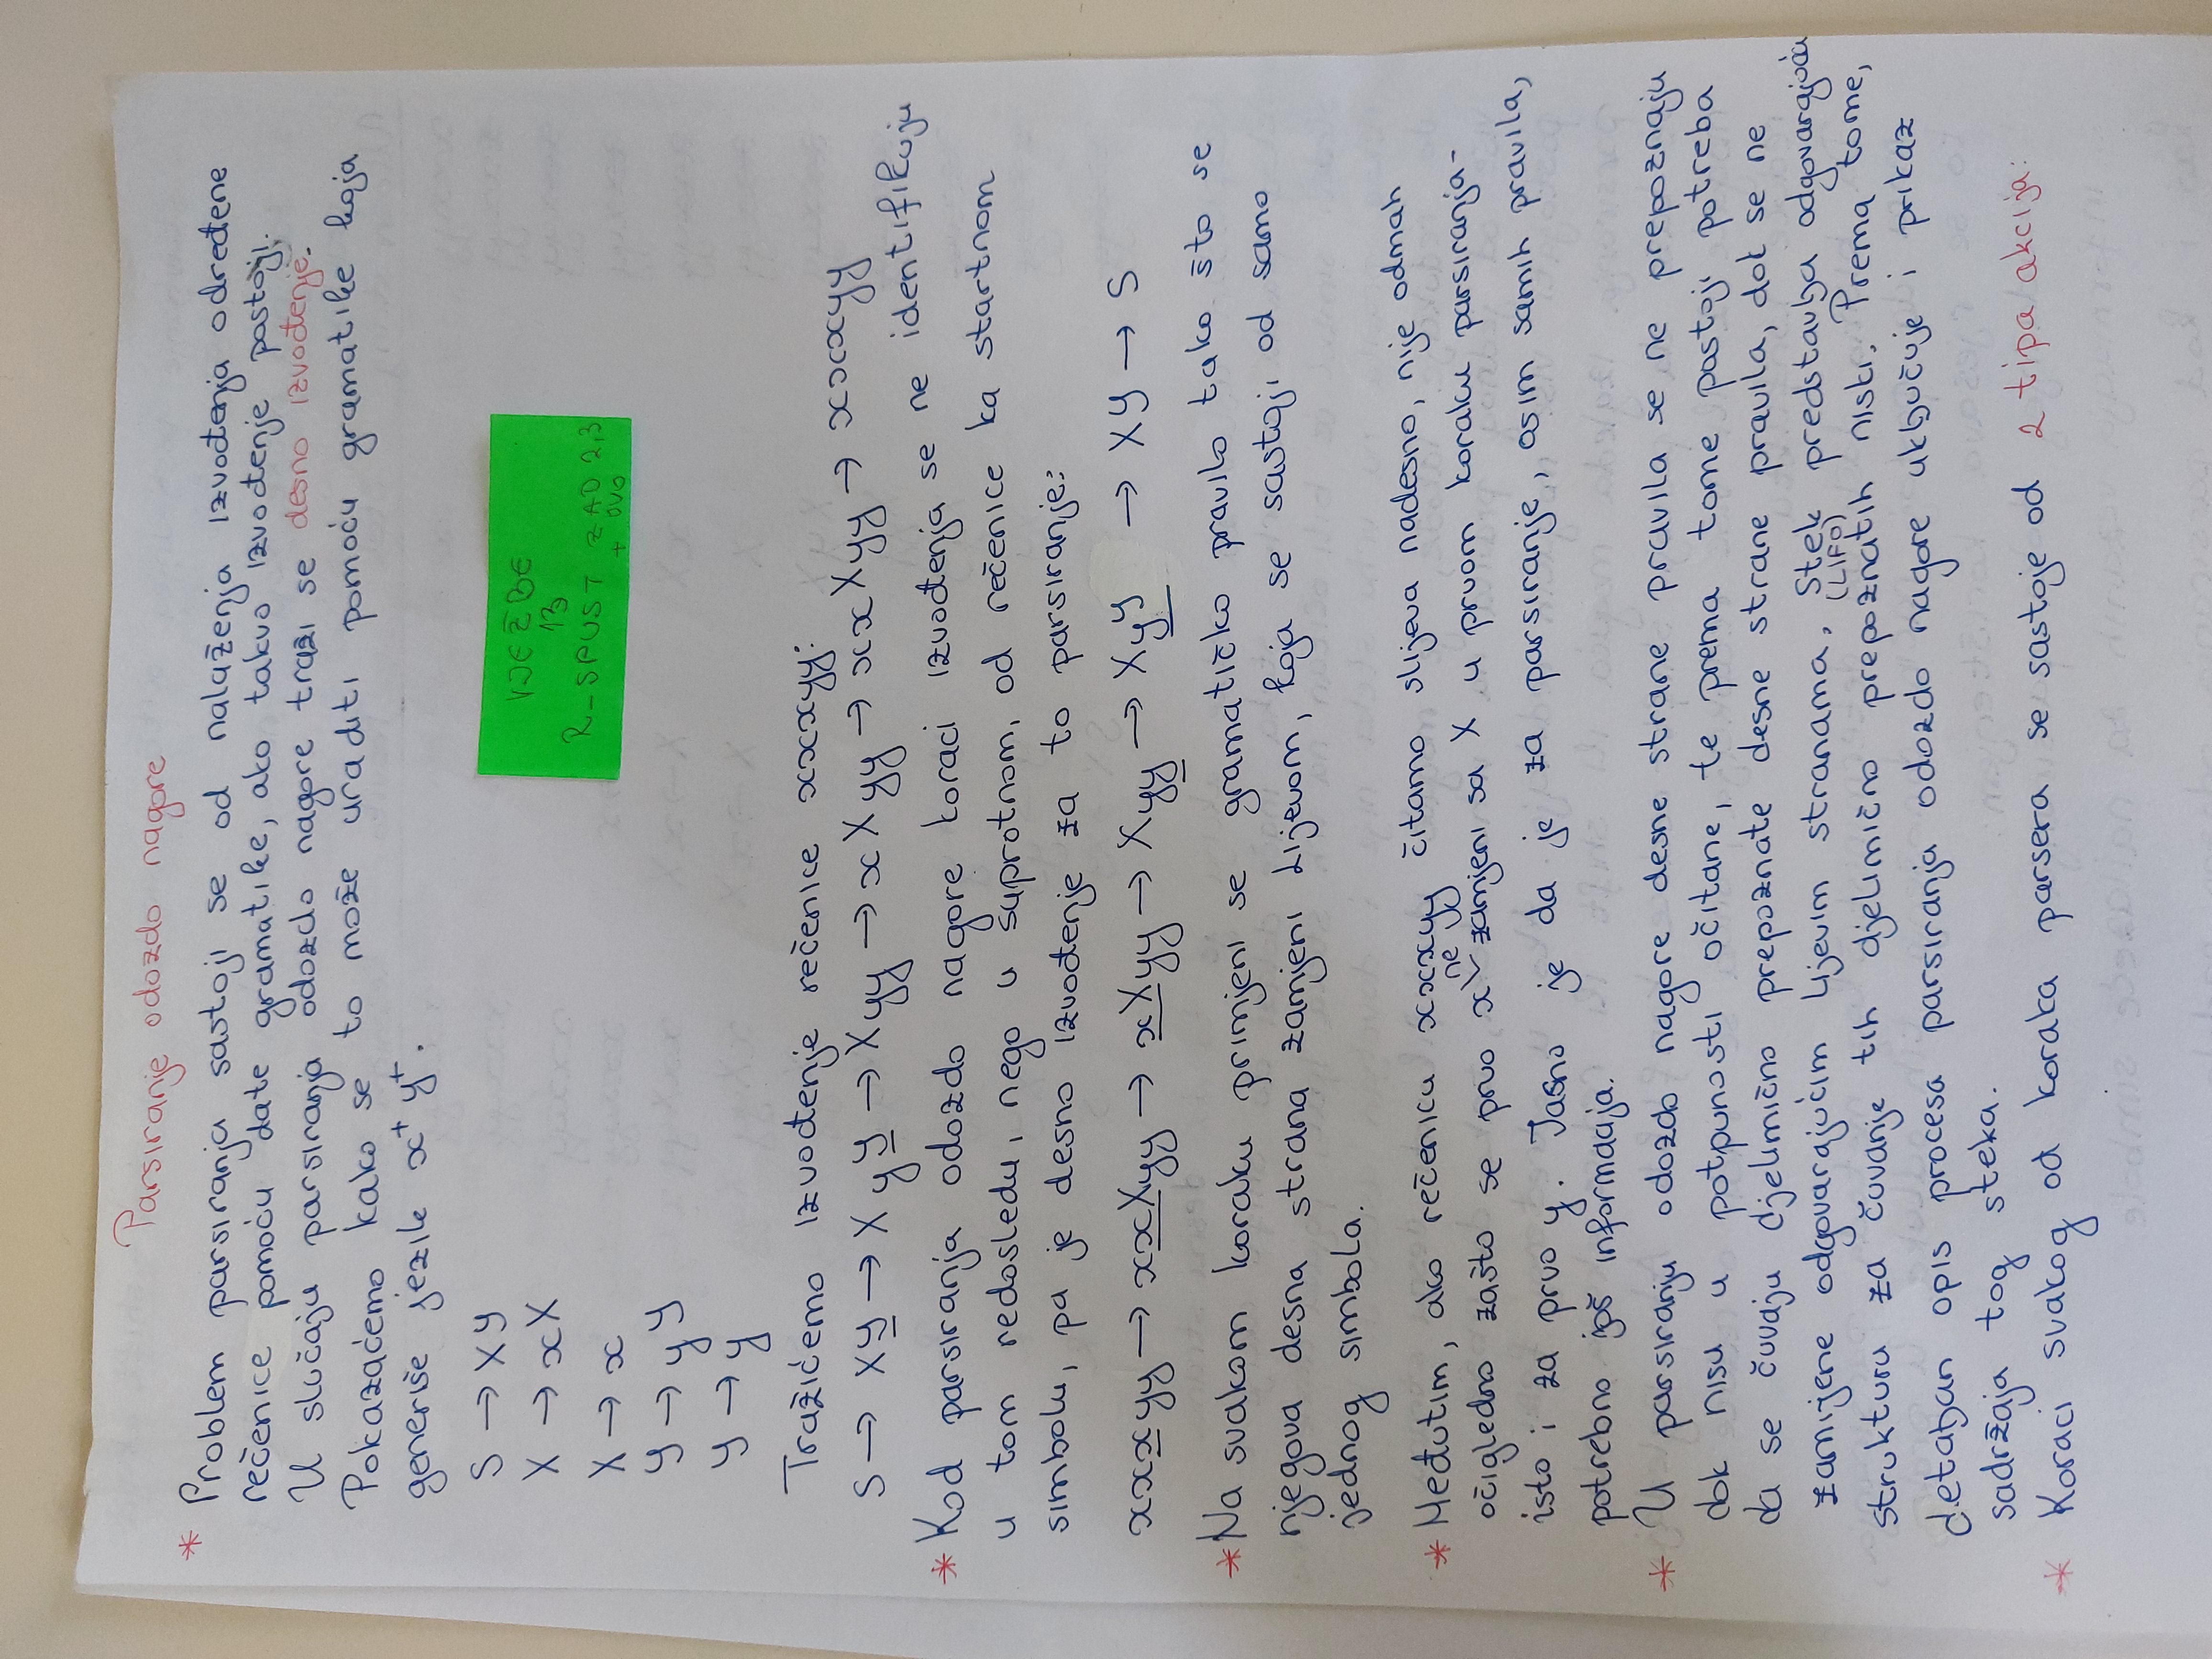 Parsiranje odozdo nagore
* Problem parsiranja sastoji se od nalaženja izvođenja određene
rečenice pomoću date gramatike, ako takvo izvođenje postoji.
U slučaju parsiranja odozdo nagore traži se desno izvođenje.
Pokazaćemo kako se to može uraditi pomoću gramatike koja
generiše jezik x⁺ y⁺.
S → XY
X → xX
X → x
Y → yY
Y → y
VJEŽBE
13
R_SPUST ZAD 2,3
+ OVO
Tražićemo izvođenje rečenice xxxyy:
S → XY → XyY → Xyy → xXyy → xxXyy → xxxyy
* Kod parsiranja odozdo nagore koraci izvođenja se ne identifikuju
u tom redosledu, nego u suprotnom, od rečenice ka startnom
simbolu, pa je desno izvođenje za to parsiranje:
xxxyy → xxXyy → xXyy → Xyy → XyY → XY → S
* Na svakom koraku primjeni se gramatičko pravilo tako što se
njegova desna strana zamjeni lijevom, koja se sastoji od samo
jednog simbola.
* Međutim, ako rečenicu xxxyy čitamo slijeva nadesno, nije odmah
očigledno zašto se prvo x ne zamjeni sa X u prvom koraku parsiranja-
isto i za prvo y. Jasno je da je za parsiranje, osim samih pravila,
potrebno još informacija.
* U parsiranju odozdo nagore desne strane pravila se ne prepoznaju
dok nisu u potpunosti očitane, te prema tome postoji potreba
da se čuvaju djelimično prepoznate desne strane pravila, dok se ne
zamijene odgovarajućim lijevim stranama. Stek predstavlja odgovarajuću
(LIFO)
strukturu za čuvanje tih djelimično prepoznatih niski. Prema tome,
detaljan opis procesa parsiranja odozdo nagore uključuje i prikaz
sadržaja tog steka.
* Koraci svakog od koraka parsera se sastoje od 2 tipa akcija: